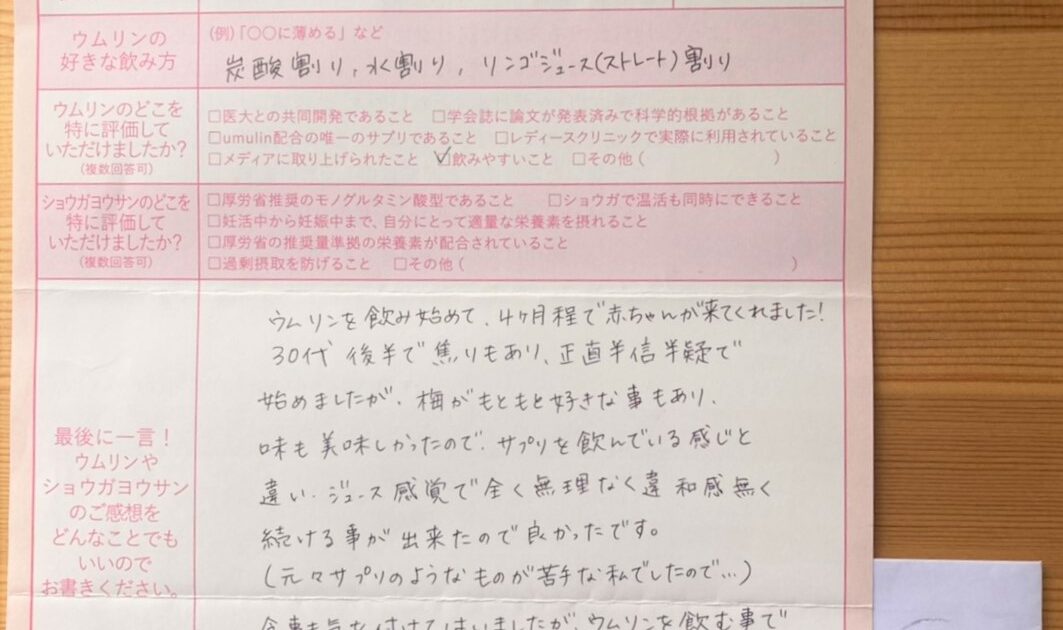 ウムリンの
好きな飲み方
(例)「〇〇に薄める」など
炭酸割り、水割り、リンゴジュース(ストレート)割り
ウムリンのどこを
特に評価して
いただけましたか?
(複数回答可)
□医大との共同開発であること □学会誌に論文が発表済みで科学的根拠があること
□umulin配合の唯一のサプリであること □レディースクリニックで実際に利用されていること
□メディアに取り上げられたこと ☑飲みやすいこと □その他( )
ショウガヨウサンのどこを
特に評価して
いただけましたか?
(複数回答可)
□厚労省推奨のモノグルタミン酸型であること □ショウガで温活も同時にできること
□妊活中から妊娠中まで、自分にとって適量な栄養素を摂れること
□厚労省の推奨量準拠の栄養素が配合されていること
□過剰摂取を防げること □その他( )
最後に一言!
ウムリンや
ショウガヨウサン
のご感想を
どんなことでも
いいので
お書きください。
ウムリンを飲み始めて、4ヶ月程で赤ちゃんが来てくれました!
30代後半で焦りもあり、正直半信半疑で
始めましたが、梅がもともと好きな事もあり、
味も美味しかったので、サプリを飲んでいる感じと
違い、ジュース感覚で全く無理なく違和感無く
続ける事が出来たので良かったです。
(元々サプリのようなものが苦手な私でしたので…)
食事も気を付けてはいましたが、ウムリンを飲む事で